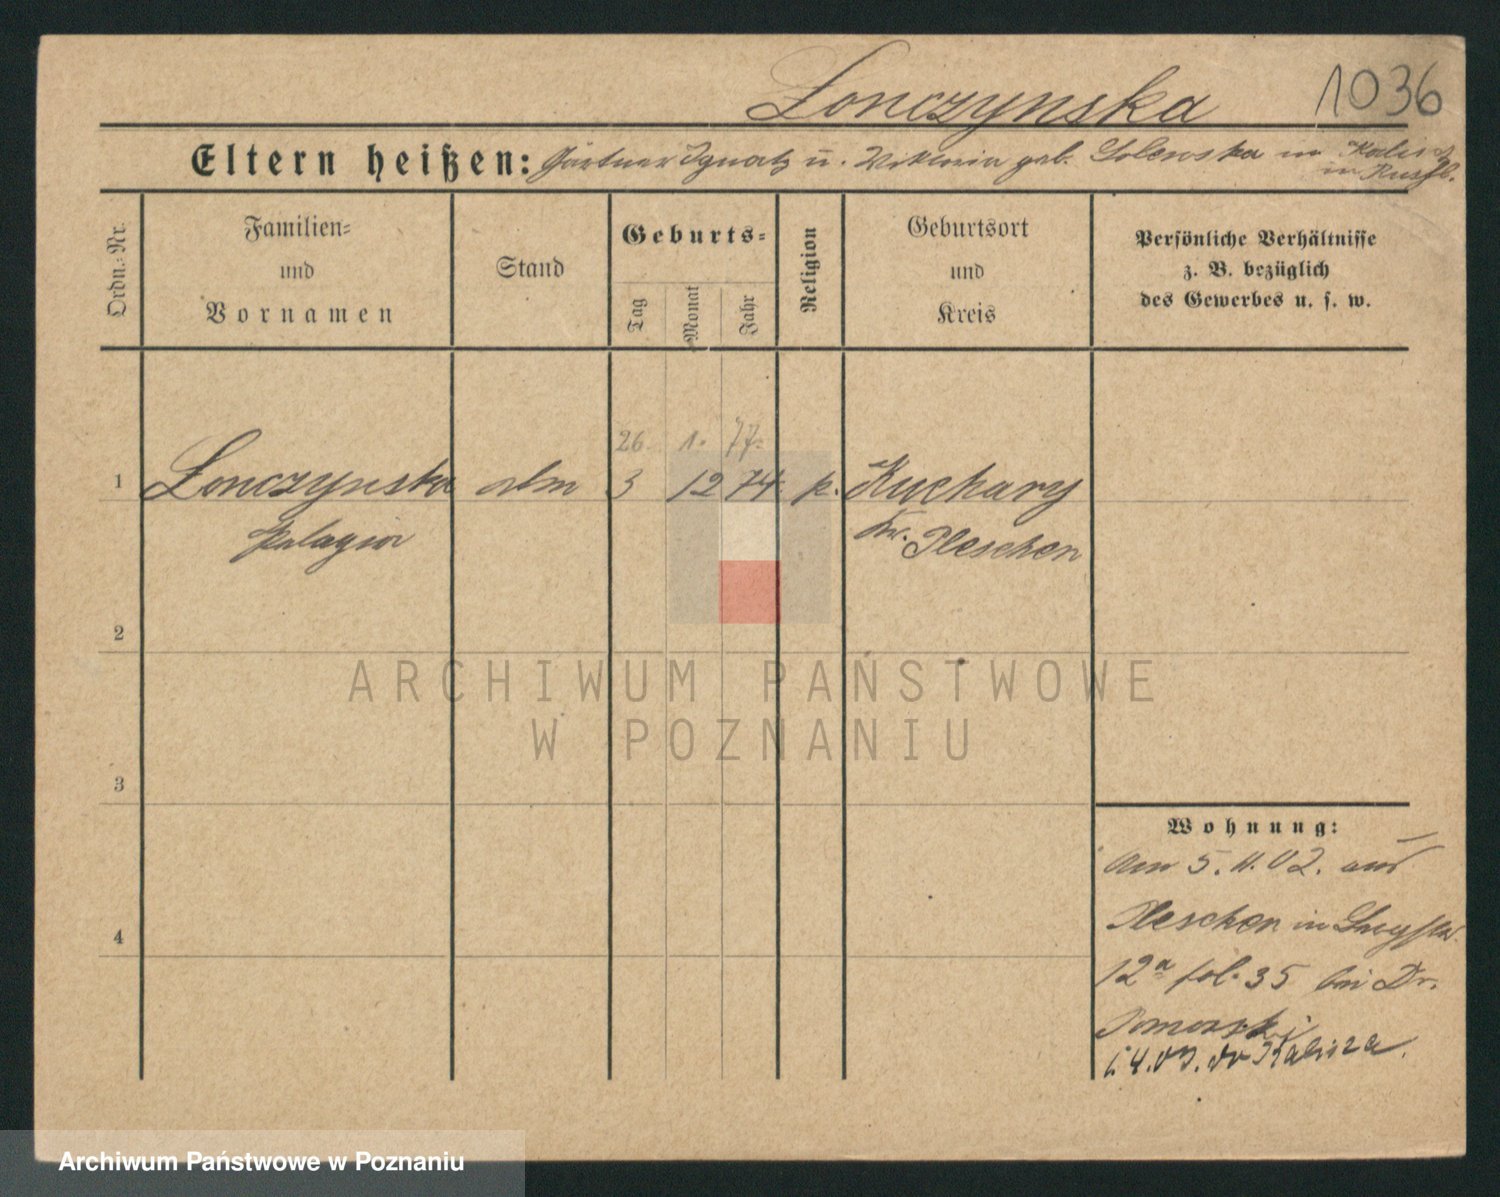 Lonczynska 1036
Eltern heißen: Gärtner Ignatz u. Wiktoria geb. Golewska in Kalisch
in Rußl.
Ordn.-Nr.
Familien-
und
Vornamen
Stand
Geburts-
Tag
Monat
Jahr
Religion
Geburtsort
und
Kreis
Persönliche Verhältnisse
z. B. bezüglich
des Gewerbes u. s. w.
26. 1. 77.
1 Lonczynska 3 12 74 k. Kuchary
Pelagia Kr. Pleschen
2
3
4
Wohnung:
Am 5. 11. 02. aus
Pleschen in
12a fol. 35 bei Dr.
Pomorski
4.03.
ARCHIWUM PAŃSTWOWE
W POZNANIU
Archiwum Państwowe w Poznaniu